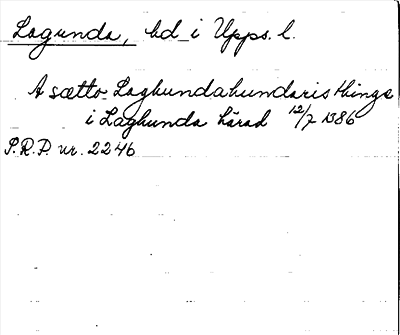 Lagunda, hd i Upps. l.
A sætto Laghundahundaris thinge
i Laghunda härad 12/7 1386
P.R.P. nr. 2246